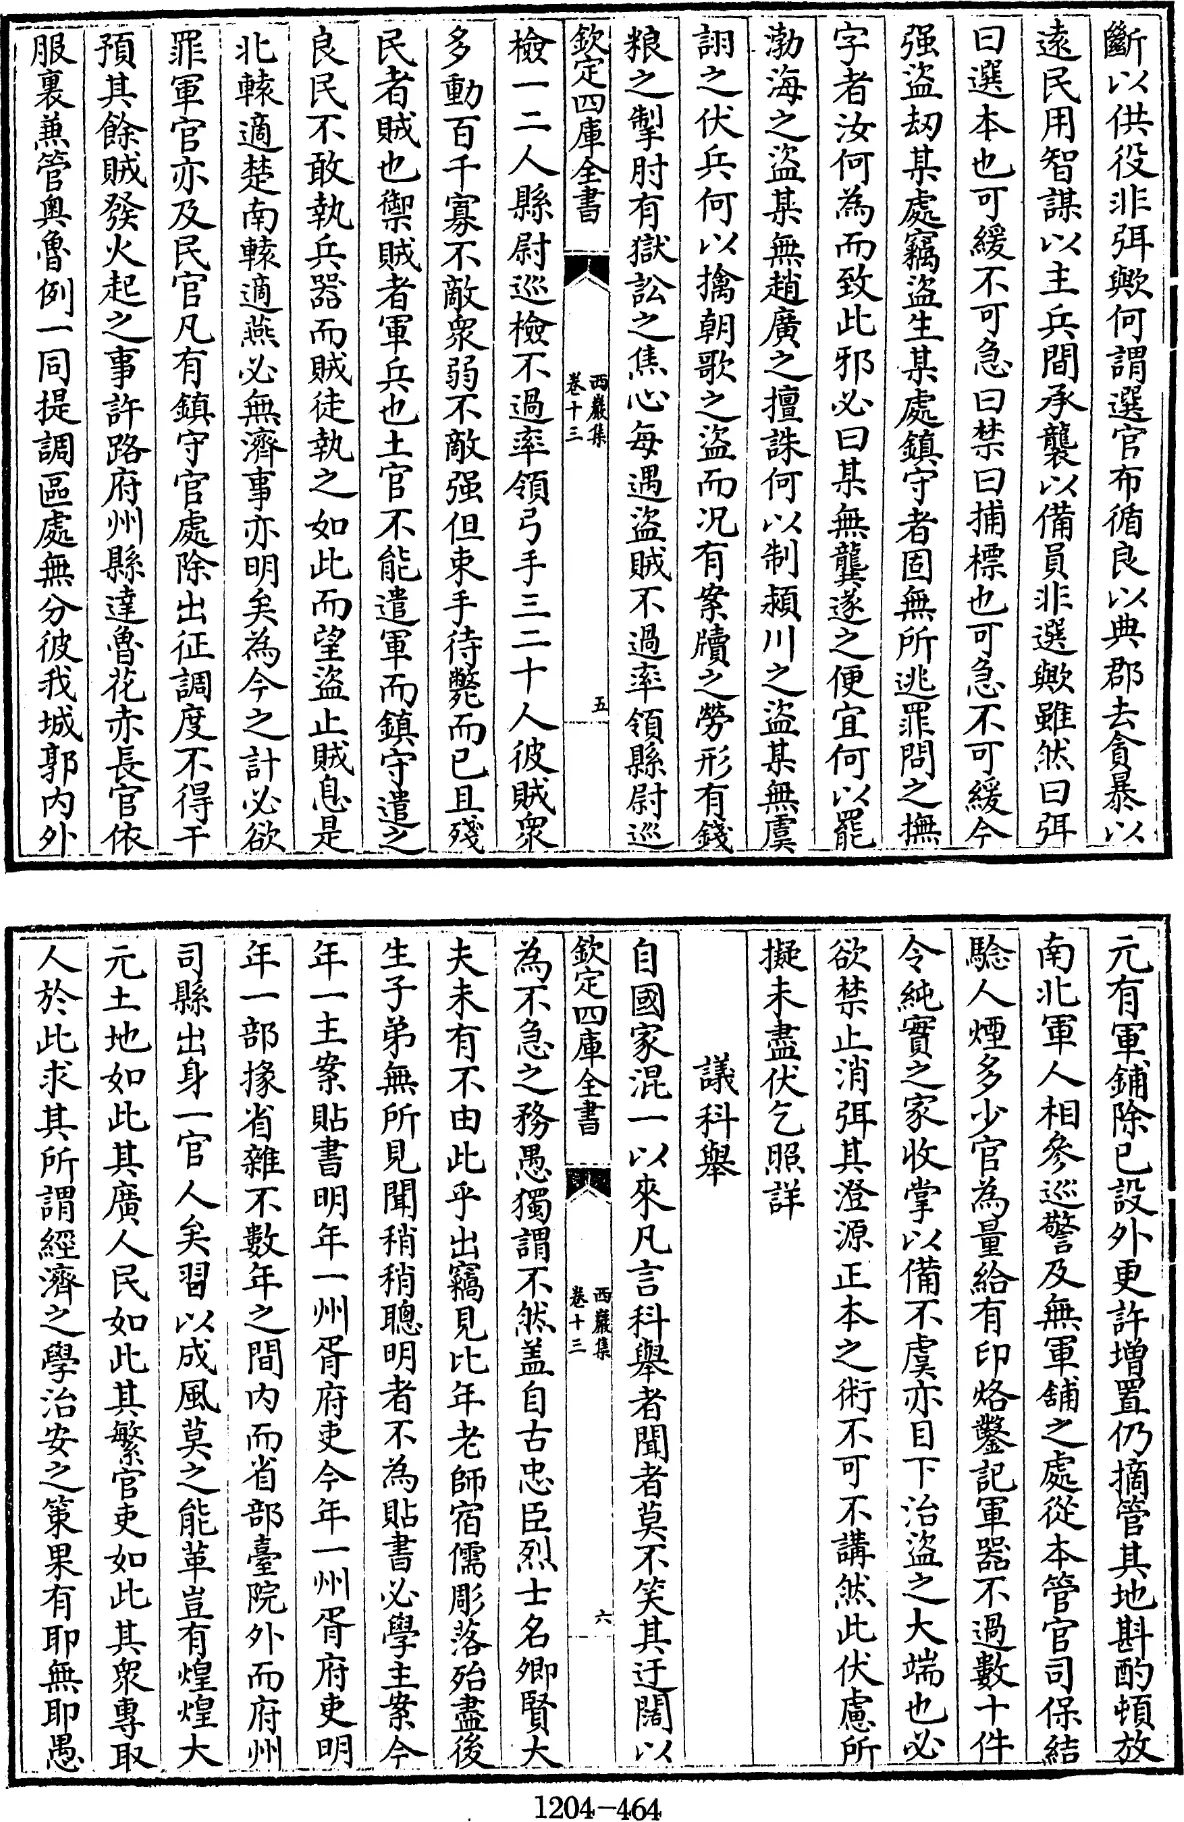 斷以供役非弭歟何謂選官布循良以典郡去貪暴以
遠民用智謀以主兵間承襲以備員非選歟雖然曰弭
曰選本也可緩不可急曰禁曰捕標也可急不可緩今
强盜刼某處竊盜生某處鎮守者固無所逃罪問之撫
字者汝何為而致此邪必曰某無龔遂之便宜何以罷
渤海之盜某無趙廣之擅誅何以制潁川之盜某無虞
詡之伏兵何以擒朝歌之盜而况有案牘之勞形有錢
粮之掣肘有獄訟之焦心每遇盜賊不過率領縣尉巡
欽定四庫全書
西巖集
卷十三
五
檢一二人縣尉巡檢不過率領弓手三二十人彼賊衆
多動百千寡不敵衆弱不敵强但束手待斃而已且殘
民者賊也禦賊者軍兵也土官不能遣軍而鎮守遣之
良民不敢執兵器而賊徒執之如此而望盜止賊息是
北轅適楚南轅適燕必無濟事亦明矣為今之計必欲
罪軍官亦及民官凡有鎮守官處除出征調度不得干
預其餘賊發火起之事許路府州縣達魯花赤長官依
服裏兼管奥魯例一同提調區處無分彼我城郭内外
元有軍鋪除已設外更許增置仍摘管其地斟酌頓放
南北軍人相參巡警及無軍鋪之處從本管官司保結
驗人煙多少官為量給有印烙鑿記軍器不過數十件
令純實之家收掌以備不虞亦目下治盜之大端也必
欲禁止消弭其澄源正本之術不可不講然此伏慮所
擬未盡伏乞照詳
議科舉
自國家混一以來凡言科舉者聞者莫不笑其迂闊以
欽定四庫全書
西巖集
卷十三
六
為不急之務愚獨謂不然盖自古忠臣烈士名卿賢大
夫未有不由此乎出竊見比年老師宿儒彫落殆盡後
生子弟無所見聞稍稍聰明者不為貼書必學主案今
年一主案貼書明年一州胥府吏今年一州胥府吏明
年一部掾省雜不數年之間内而省部臺院外而府州
司縣出身一官人矣習以成風莫之能革豈有煌煌大
元土地如此其廣人民如此其繁官吏如此其衆專取
人於此求其所謂經濟之學治安之策果有耶無耶愚
1204-464